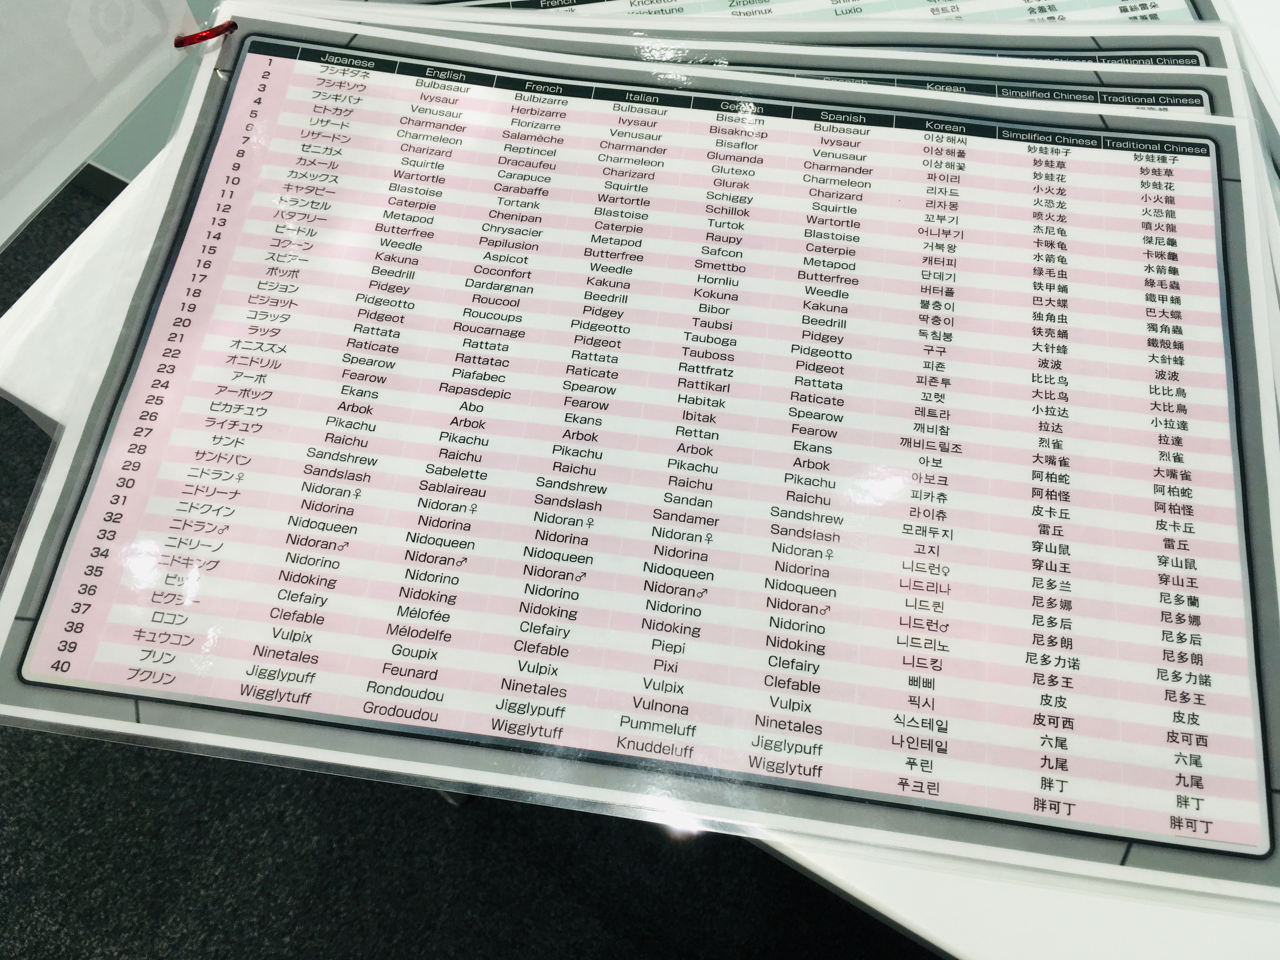 French Kricketot Zirpeise
Kricketune Sheinux Luxio 렌트라 含羞苞 羅絲雷朵
Traditional Chinese
Korean Simplified Chinese Traditional Chinese
Japanese English French Italian German Spanish Korean Simplified Chinese Traditional Chinese
1 フシギダネ Bulbasaur Bulbizarre Bulbasaur Bisasam Bulbasaur 이상해씨 妙蛙种子 妙蛙種子
2 フシギソウ Ivysaur Herbizarre Ivysaur Bisaknosp Ivysaur 이상해풀 妙蛙草 妙蛙草
3 フシギバナ Venusaur Florizarre Venusaur Bisaflor Venusaur 이상해꽃 妙蛙花 妙蛙花
4 ヒトカゲ Charmander Salamèche Charmander Glumanda Charmander 파이리 小火龙 小火龍
5 リザード Charmeleon Reptincel Charmeleon Glutexo Charmeleon 리자드 火恐龙 火恐龍
6 リザードン Charizard Dracaufeu Charizard Glurak Charizard 리자몽 喷火龙 噴火龍
7 ゼニガメ Squirtle Carapuce Squirtle Schiggy Squirtle 꼬부기 杰尼龟 傑尼龜
8 カメール Wartortle Carabaffe Wartortle Schillok Wartortle 어니부기 卡咪龟 卡咪龜
9 カメックス Blastoise Tortank Blastoise Turtok Blastoise 거북왕 水箭龟 水箭龜
10 キャタピー Caterpie Chenipan Caterpie Raupy Caterpie 캐터피 绿毛虫 綠毛蟲
11 トランセル Metapod Chrysacier Metapod Safcon Metapod 단데기 铁甲蛹 鐵甲蛹
12 バタフリー Butterfree Papilusion Butterfree Smettbo Butterfree 버터플 巴大蝶 巴大蝶
13 ビードル Weedle Aspicot Weedle Hornliu Weedle 뿔충이 独角虫 獨角蟲
14 コクーン Kakuna Coconfort Kakuna Kokuna Kakuna 딱충이 铁壳蛹 鐵殼蛹
15 スピアー Beedrill Dardargnan Beedrill Bibor Beedrill 독침붕 大针蜂 大針蜂
16 ポッポ Pidgey Roucool Pidgey Taubsi Pidgey 구구 波波 波波
17 ピジョン Pidgeotto Roucoups Pidgeotto Tauboga Pidgeotto 피죤 比比鸟 比比鳥
18 ピジョット Pidgeot Roucarnage Pidgeot Tauboss Pidgeot 피죤투 大比鸟 大比鳥
19 コラッタ Rattata Rattata Rattata Rattfratz Rattata 꼬렛 小拉达 小拉達
20 ラッタ Raticate Rattatac Raticate Rattikarl Raticate 레트라 拉达 拉達
21 オニスズメ Spearow Piafabec Spearow Habitak Spearow 깨비참 烈雀 烈雀
22 オニドリル Fearow Rapasdepic Fearow Ibitak Fearow 깨비드릴조 大嘴雀 大嘴雀
23 アーボ Ekans Abo Ekans Rettan Ekans 아보 阿柏蛇 阿柏蛇
24 アーボック Arbok Arbok Arbok Arbok Arbok 아보크 阿柏怪 阿柏怪
25 ピカチュウ Pikachu Pikachu Pikachu Pikachu Pikachu 피카츄 皮卡丘 皮卡丘
26 ライチュウ Raichu Raichu Raichu Raichu Raichu 라이츄 雷丘 雷丘
27 サンド Sandshrew Sabelette Sandshrew Sandan Sandshrew 모래두지 穿山鼠 穿山鼠
28 サンドパン Sandslash Sablaireau Sandslash Sandamer Sandslash 고지 穿山王 穿山王
29 ニドラン♀ Nidoran♀ Nidoran♀ Nidoran♀ Nidoran♀ Nidoran♀ 니드런♀ 尼多兰 尼多蘭
30 ニドリーナ Nidorina Nidorina Nidorina Nidorina Nidorina 니드리나 尼多娜 尼多娜
31 ニドクイン Nidoqueen Nidoqueen Nidoqueen Nidoqueen Nidoqueen 니드퀸 尼多后 尼多后
32 ニドラン♂ Nidoran♂ Nidoran♂ Nidoran♂ Nidoran♂ Nidoran♂ 니드런♂ 尼多朗 尼多朗
33 ニドリーノ Nidorino Nidorino Nidorino Nidorino Nidorino 니드리노 尼多力诺 尼多力諾
34 ニドキング Nidoking Nidoking Nidoking Nidoking Nidoking 니드킹 尼多王 尼多王
35 ピッピ Clefairy Mélofée Clefairy Piepi Clefairy 삐삐 皮皮 皮皮
36 ピクシー Clefable Mélodelfe Clefable Pixi Clefable 픽시 皮可西 皮可西
37 ロコン Vulpix Goupix Vulpix Vulpix Vulpix 식스테일 六尾 六尾
38 キュウコン Ninetales Feunard Ninetales Vulnona Ninetales 나인테일 九尾 九尾
39 プリン Jigglypuff Rondoudou Jigglypuff Pummeluff Jigglypuff 푸린 胖丁 胖丁
40 プクリン Wigglytuff Grodoudou Wigglytuff Knuddeluff Wigglytuff 푸크린 胖可丁 胖可丁